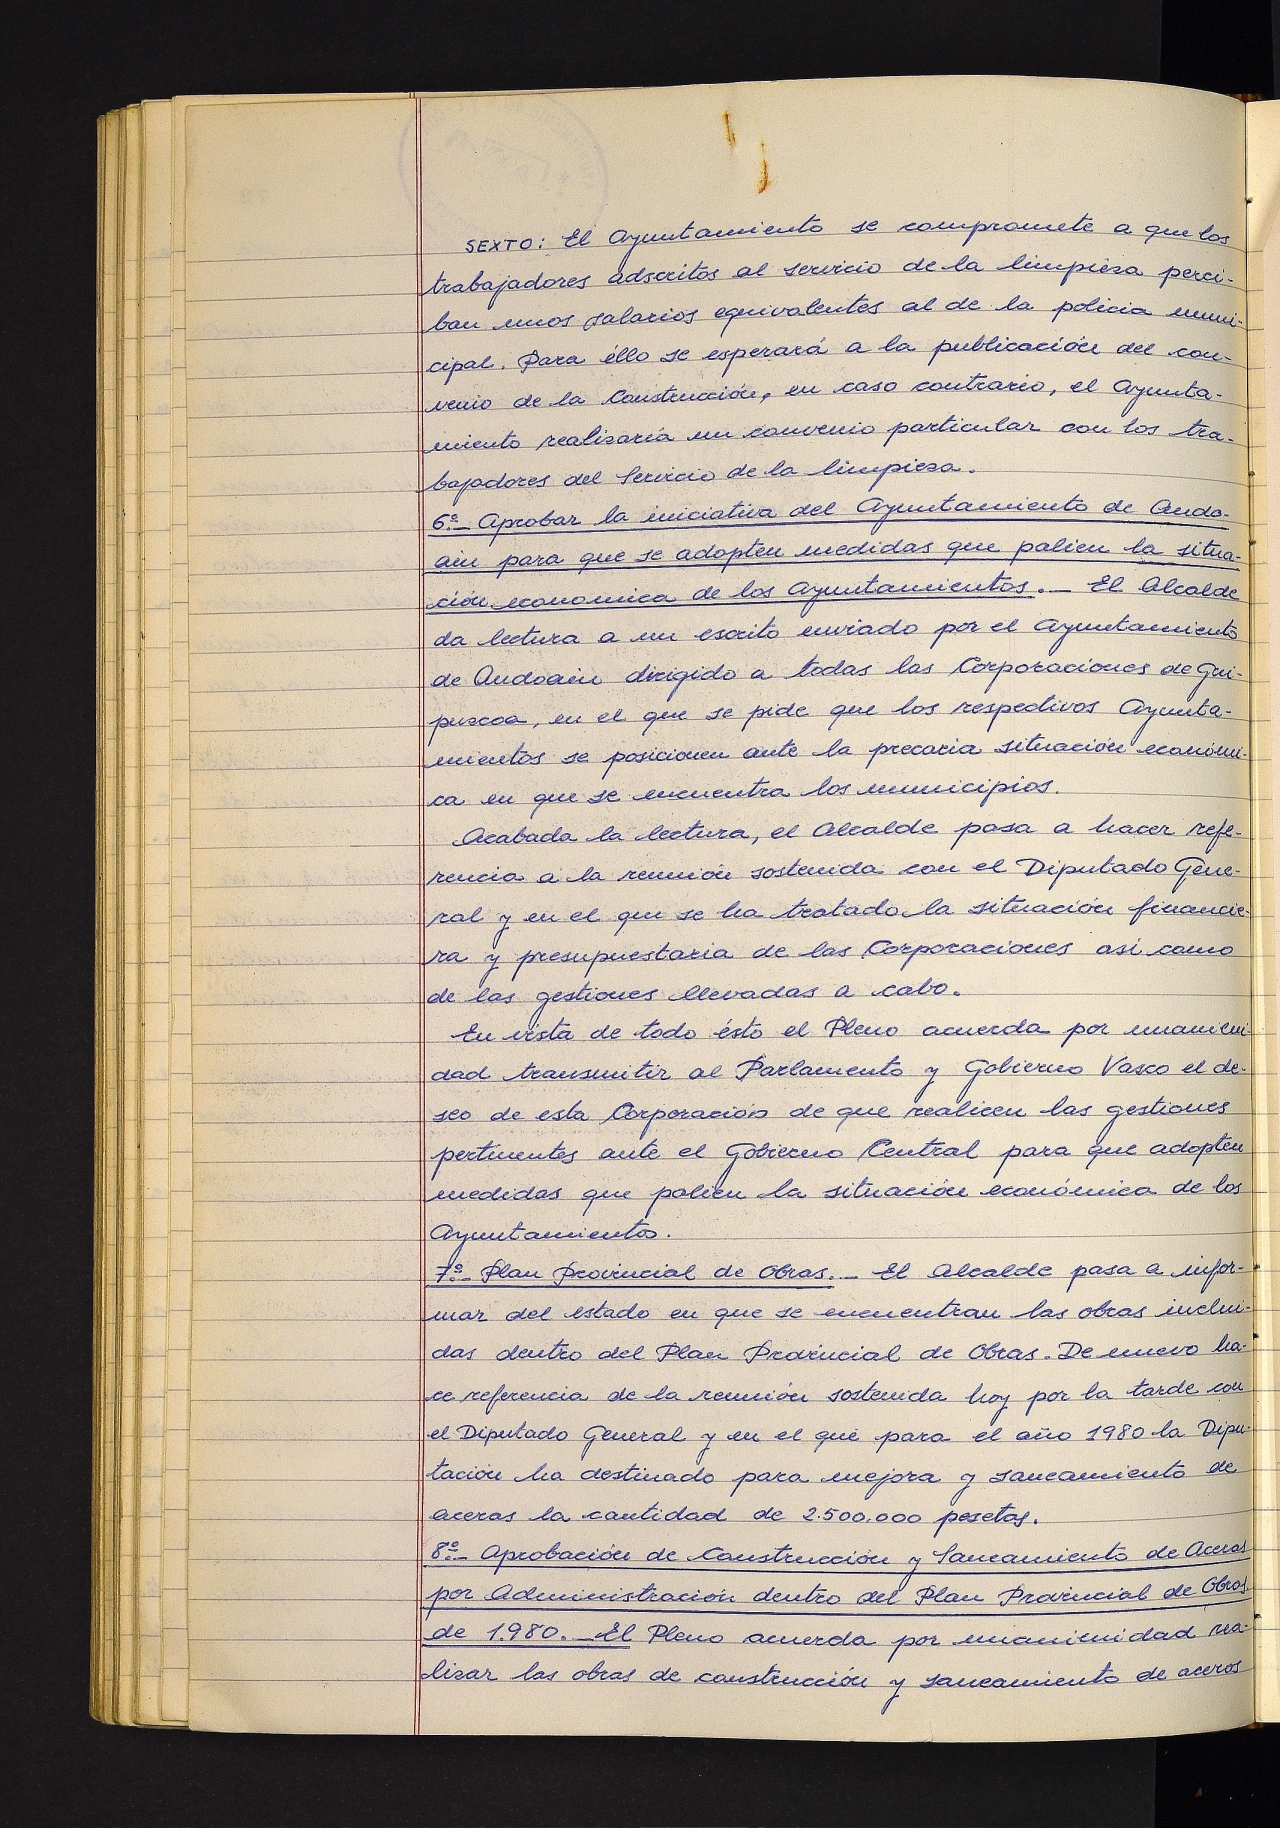 SEXTO: El Ayuntamiento se compromete a que los
trabajadores adscritos al servicio de la limpieza perci-
ban unos salarios equivalentes al de la policia muni-
cipal. Para éllo se esperará a la publicación del con-
venio de la Construcción, en caso contrario, el Ayunta-
miento realizaría un convenio particular con los tra-
bajadores del Servicio de la limpieza.
6º.- Aprobar la iniciativa del Ayuntamiento de Ando-
ain para que se adopten medidas que palien la situa-
ción economica de los Ayuntamientos.- El Alcalde
da lectura a un escrito enviado por el Ayuntamiento
de Andoain dirigido a todas las Corporaciones de Gui-
puzcoa, en el que se pide que los respectivos Ayunta-
mientos se posicionen ante la precaria situación económi-
ca en que se encuentra los municipios.
Acabada la lectura, el Alcalde pasa a hacer refe-
rencia a la reunión sostenida con el Diputado Gene-
ral y en el que se ha tratado la situación financie-
ra y presupuestaria de las Corporaciones asi como
de las gestiones llevadas a cabo.
En vista de todo ésto el Pleno acuerda por unanimi-
dad transmitir al Parlamento y Gobierno Vasco el de-
seo de esta Corporación de que realicen las gestiones
pertinentes ante el Gobierno Central para que adopten
medidas que palien la situación económica de los
Ayuntamientos.
7º.- Plan Provincial de Obras.- El Alcalde pasa a infor-
mar del estado en que se encuentran las obras inclui-
das dentro del Plan Provincial de Obras. De nuevo ha-
ce referencia de la reunión sostenida hoy por la tarde con
el Diputado General y en el que para el año 1980 la Dipu-
tación ha destinado para mejora y saneamiento de
aceras la cantidad de 2.500.000 pesetas.
8º.- Aprobación de Construcción y Saneamiento de Aceras
por Administración dentro del Plan Provincial de Obras
de 1.980.- El Pleno acuerda por unanimidad rea-
lizar las obras de construcción y saneamiento de aceras